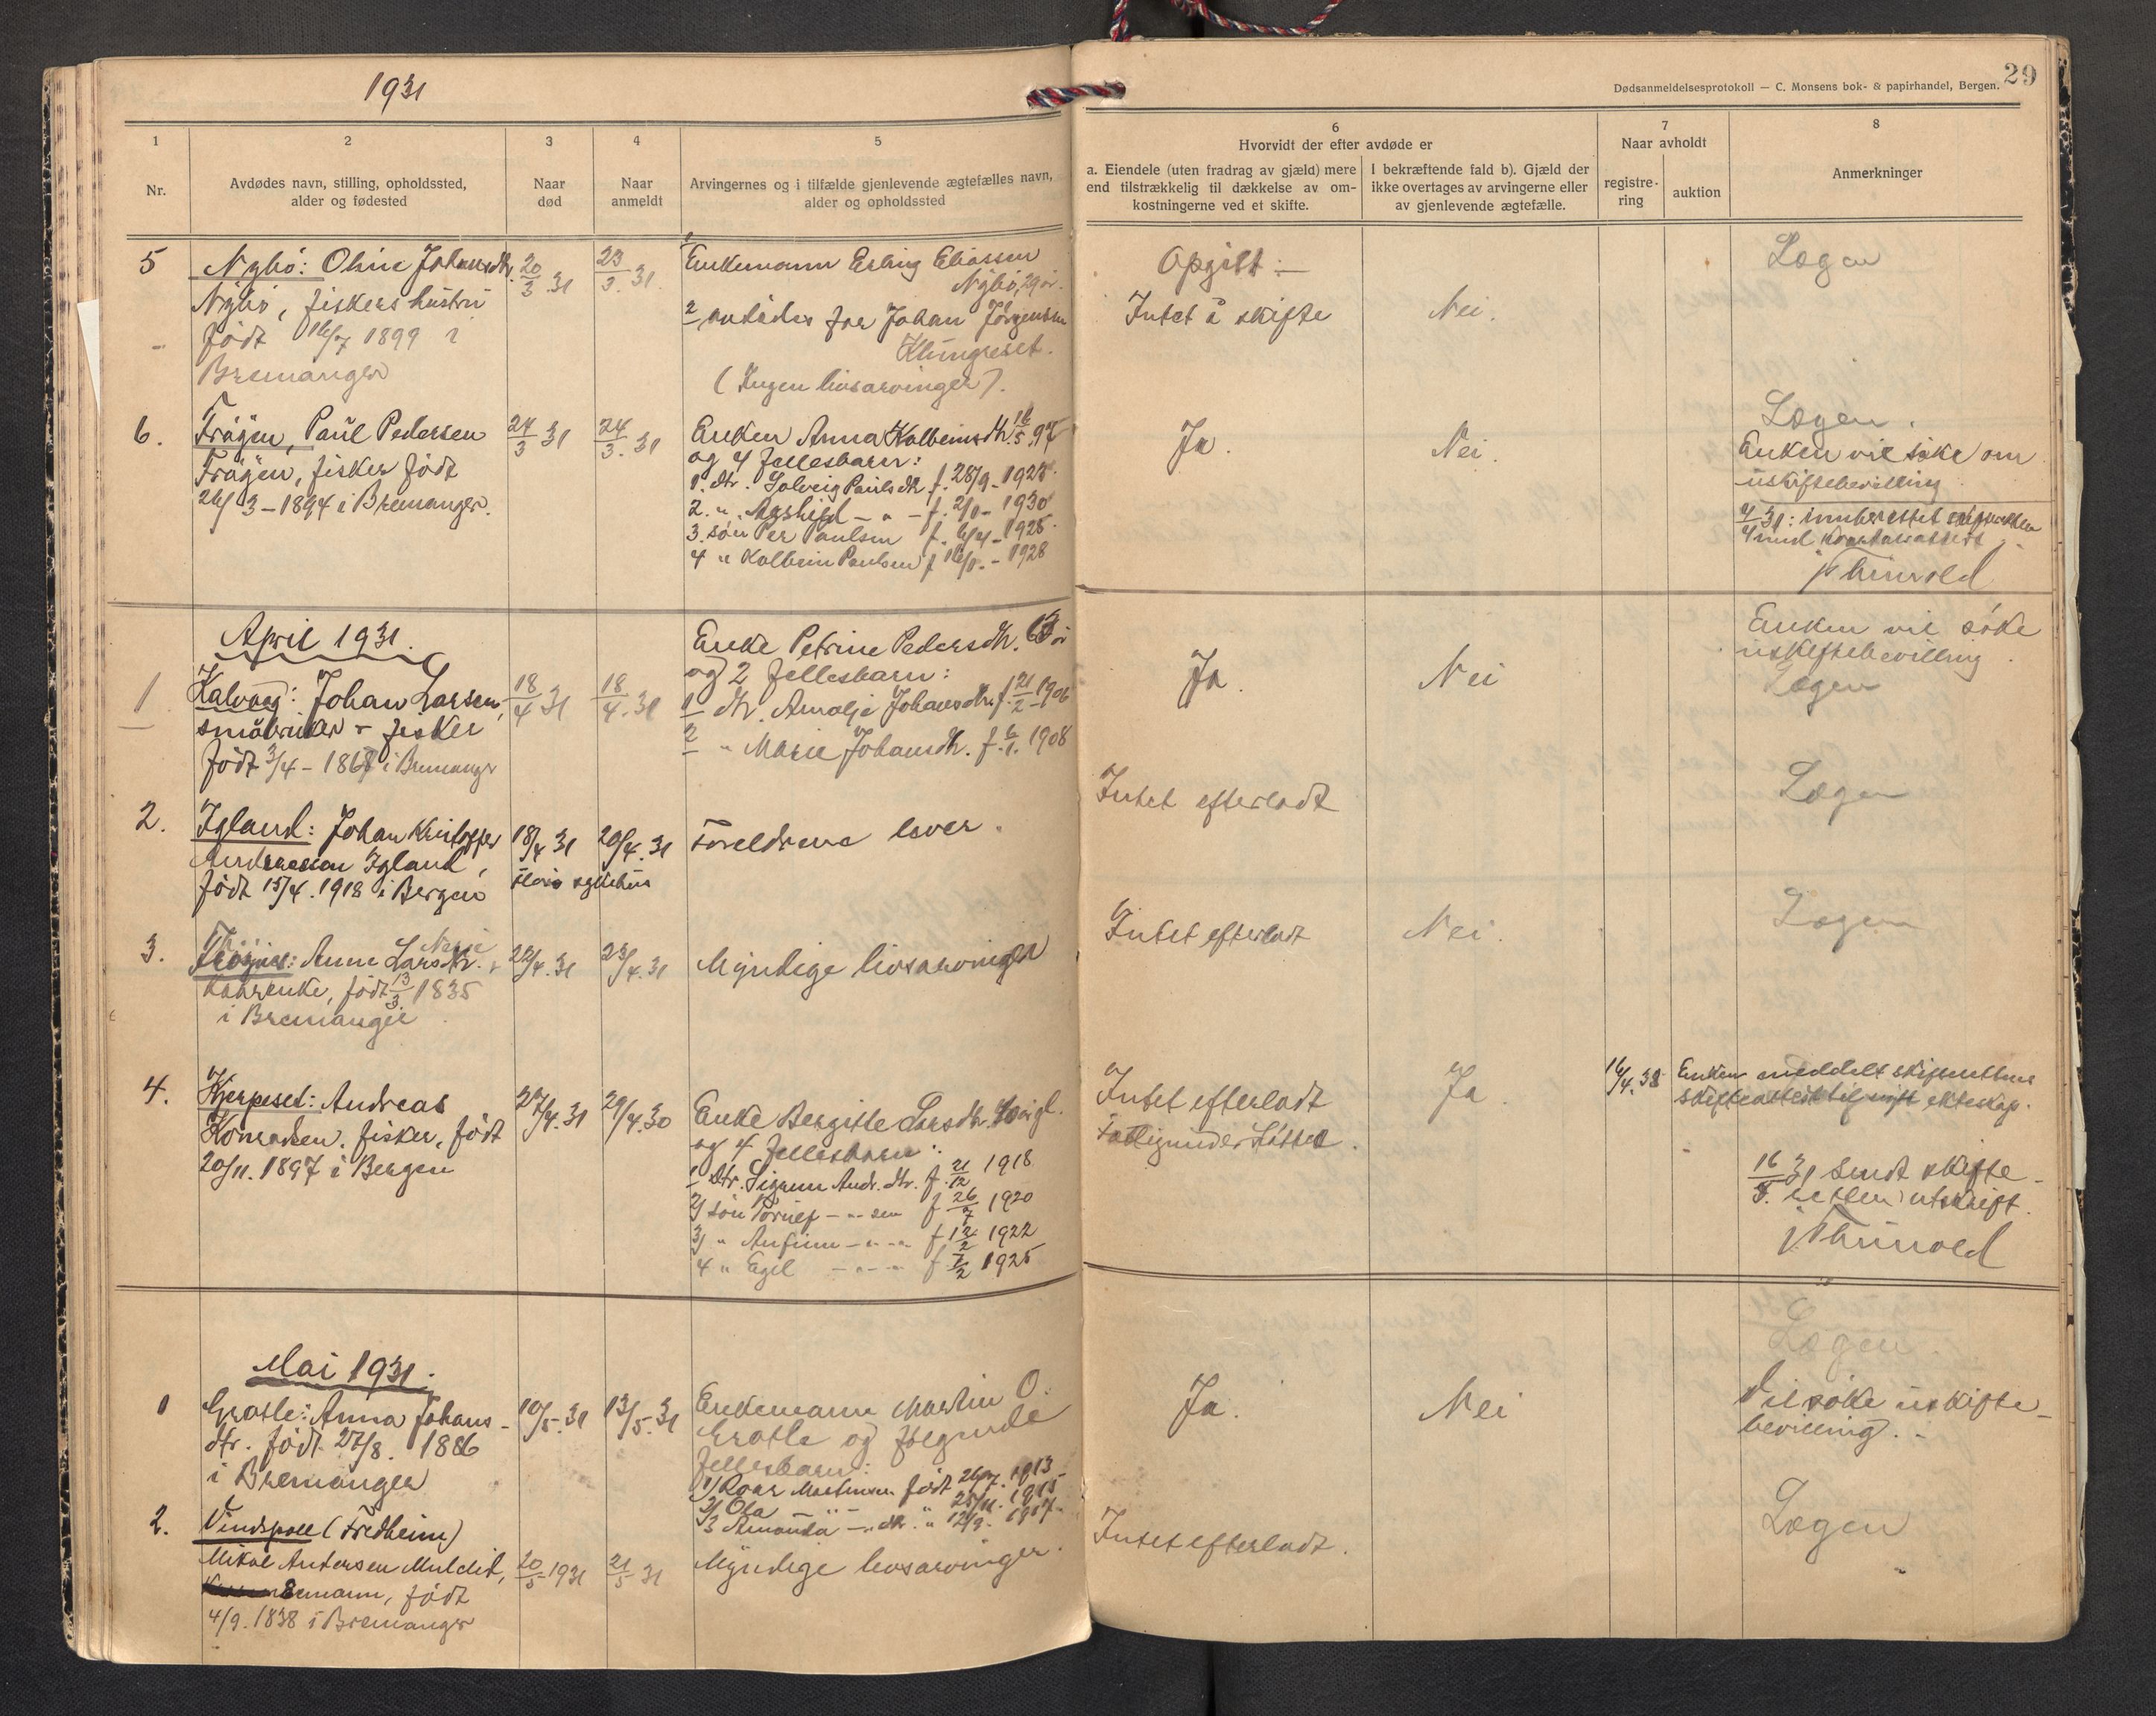 1931
1
2
3
4
5
Nr.
Avdødes navn, stilling, opholdssted,
alder og fødested
Naar
død
Naar
anmeldt
Arvingernes og i tilfælde gjenlevende ægtefælles navn,
alder og opholdssted
5
Nybö: Oline Johansdtr.
Nybö, fiskers hustru
født 16/7 1899 i
Bremanger
20/3 31
23/3. 31.
1 Enkemann Erling Eliassen
Nybö, 29 år.
2 avdødes far Johan Jörgensen
Klungreset.
(Ingen livsarvinger).
6.
Frøyen, Paul Pedersen
Frøyen, fisker født
26/3-1894 i Bremanger.
24/3 31
24/3. 31
Enken Anna Kolbeinsdtr. 16/5 97
og 4 fellesbarn:
1. dtr. Solveig Paulsdtr f. 28/9-1923
2. " Aashild - " - f. 2/1- 1930
3. søn Per Paulsen f. 6/4-1925
4 " Kolbein Paulsen f 16/1.-1928
April 1931.
1
Kalvaag: Johan Larsen,
småbruker - fisker
født 3/4-1867 i Bremanger
18/4 31
18/4. 31
Enke Petrine Pedersdtr. 63 år
og 2 fellesbarn:
1 dtr. Amalje Johansdtr. f. 21/2-1906
2 " Marie Johansdtr. f. 6/1. 1908
2.
Igland: Johan Kristoffer
Andreassen Igland,
født 15/4. 1918 i Bergen
18/4 31
20/4. 31
Florø sykehus
Foreldrene lever.
3.
Anne Marie Larsdtr.
kaarenke, født 13/3. 1835
i Bremanger
22/4. 31
23/4. 31
Myndige livsarvinger
4.
Hjerpeset: Andreas
Konradsen. fisker, født
20/11. 1897 i Bergen
27/4. 31
29/4. 30
Enke Bergitte Larsdtr.
og 4 fellesbarn:
1 Dtr. Sigrun Andr. dtr. f. 21/12 1918
2/ søn Torleif - " - sen f 26/7 1920
3/ " Anfinn - " - " f 12/2 1922
4 " Egil - " - " f 7/2 1925
Mai 1931.
1
Grotle: Anna Johans-
dtr. født 27/8. 1886
i Bremanger
10/5. 31
13/5. 31
Enkemann Martin O.
Grotle og følgende
fellesbarn:
1/ Roar Martinsen født 26/7. 1913
2/ Ola - " - " 25/11. 1915
3 Amanda - " dtr. " 12/9. 1917.
2.
Vindspoll (Fredheim)
Mikal Andersen Muldeid,
Enkemann, født
4/9. 1838 i Bremanger
20/5 1931
21/5 31
Myndige livsarvinger.
29
Dødsanmeldelsesprotokoll — C. Monsens bok- & papirhandel, Bergen.
6
Hvorvidt der efter avdøde er
7
Naar avholdt
8
Anmerkninger
a. Eiendele (uten fradrag av gjæld) mere
end tilstrækkelig til dækkelse av om-
kostningerne ved et skifte.
I bekræftende fald b). Gjæld der
ikke overtages av arvingerne eller
av gjenlevende ægtefælle.
registre-
ring
auktion
Opgitt:-
Intet å skifte
Nei.
Lægen
Ja.
Nei.
Lægen.
Enken vil søke om
uskiftebevilling
Ja.
Nei
Enken vil søke
uskiftebevilling.
Lægen
Intet efterladt
Lægen
Intet efterladt
Nei.
Lægen
Intet efterladt
Fattigunderstøttet.
Ja.
16/4. 38
Enken meddelt
skifteattest til nytt ekteskap.
16/5. 31 Sendt skifte-
retten utskrift.
Ja.
Nei
Lægen.
Vil søke uskifte-
bevilling.-
Intet efterladt.
Lægen